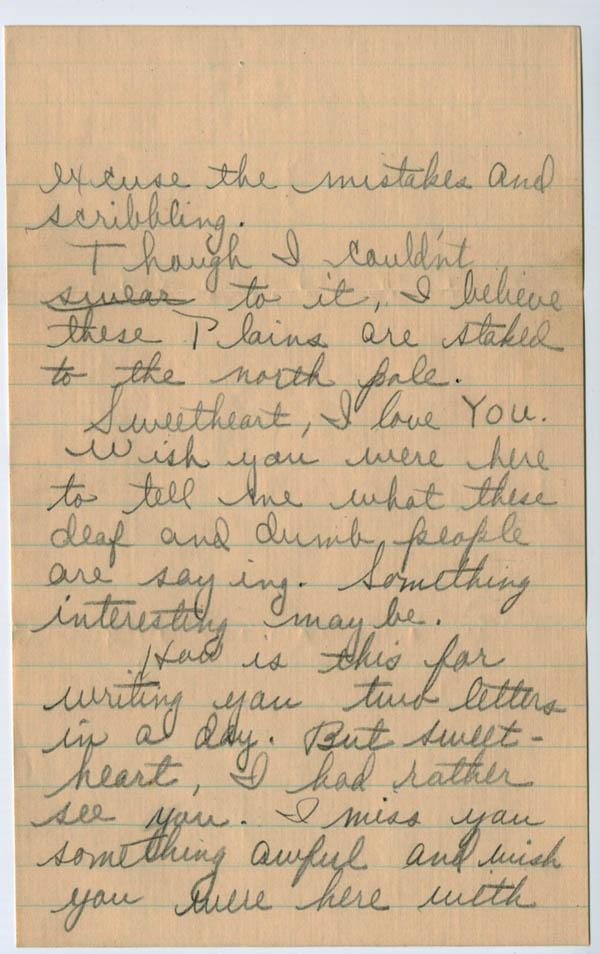 excuse the mistakes and
scribbling.
Though I could'nt
swear to it, I believe
these Plains are staked
to the north pole.
Sweetheart, I love You.
Wish you were here
to tell me what these
deaf and dumb people
are saying. Something
interesting maybe.
How is this for
writing you two letters
in a day. But sweet-
heart, I had rather
see you. I miss you
something awful and wish
you were here with